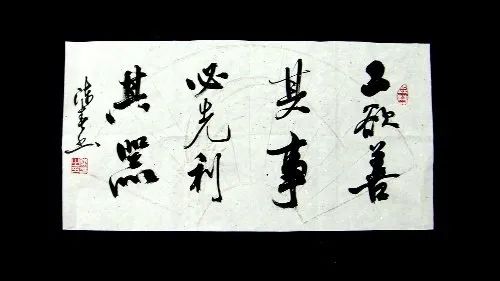 工欲善
其事
必先利
其器